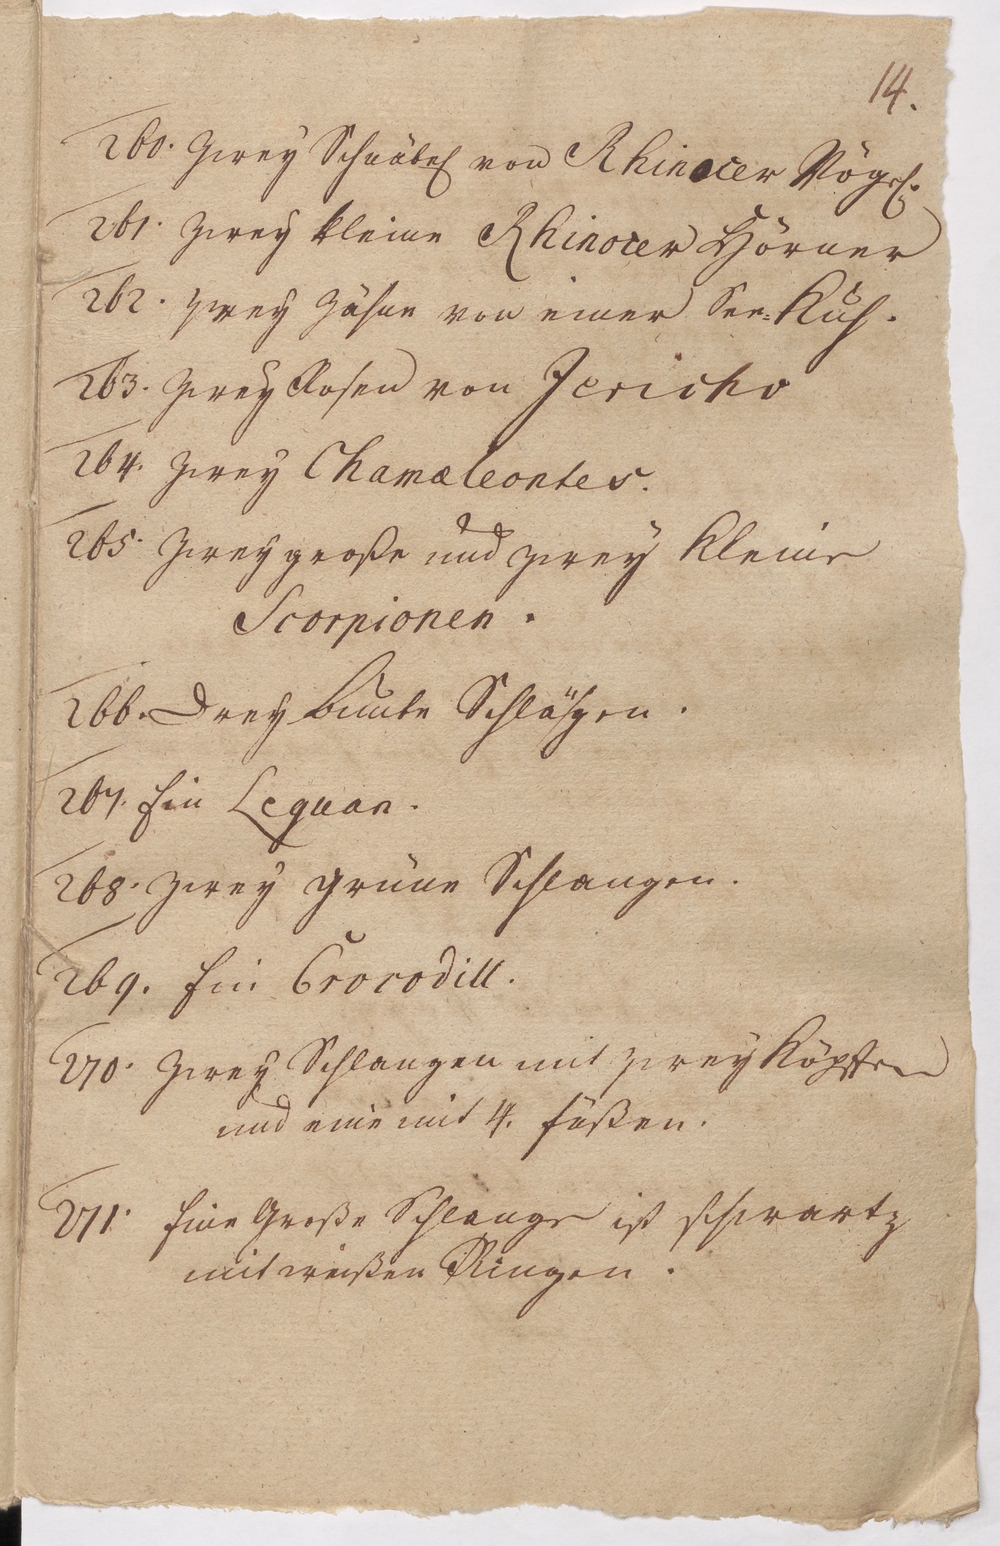 14.
260. Zwey Schnäbel von Rhinocer Vögel.
261. Zwey kleine Rhinocer Hörner
262. Zwey Zähne von einer See-Kuh.
263. Zwey Rosen von Jericho
264. Zwey Chamæleontes.
265. Zwey große und zwey kleine
Scorpionen.
266. Drey bunte
267. Ein Leguan.
268. Zwey grüne Schlangen.
269. Ein Crocodill.
270. Zwey Schlangen mit zwey Köpffen
und eine mit 4. füßen.
271. Eine Große Schlange ist schwartz
mit weißen Ringen.